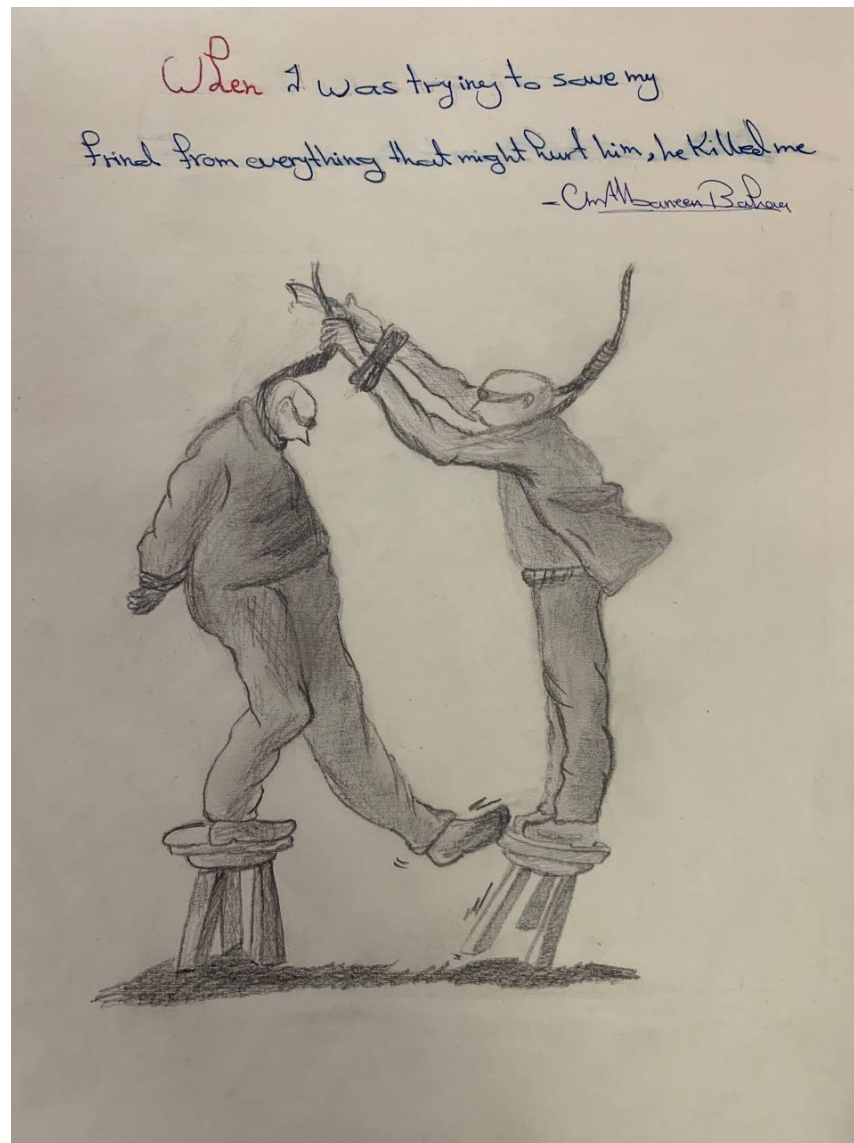 When I was trying to save my
frind from everything that might hurt him, he Killed me